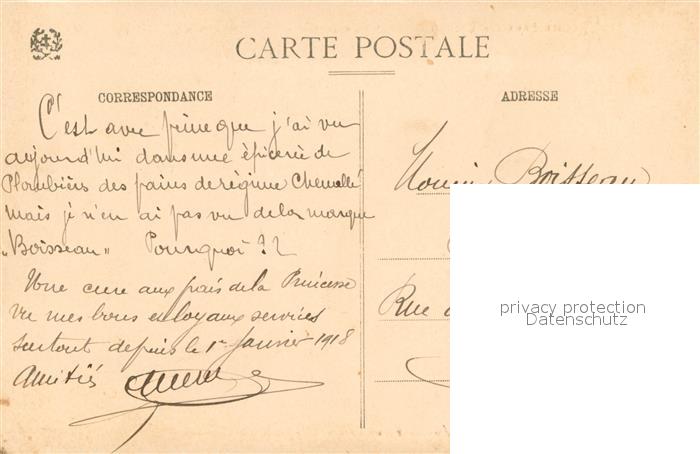 CARTE POSTALE
CORRESPONDANCE
ADRESSE
C'est avec peine que j'ai vu
aujourd'hui dans une épicerie de
Plombières des pains de régime
mais je n'en ai pas vu de la marque
"Boisseau" Pourquoi ??
Une cure aux frais de la Princesse
vu mes bons et loyaux services
surtout depuis le 1er Janvier 1918
Amitiés
Boisseau
Rue
privacy protection
Datenschutz